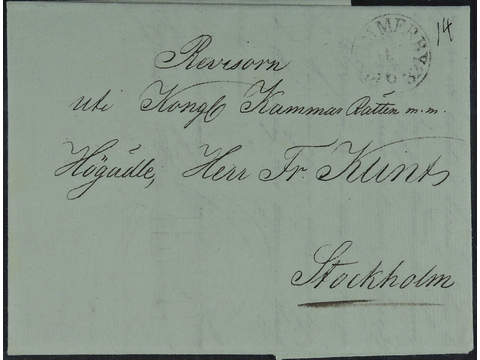 14
Revisorn
uti Kongl Kammar Rätten m.m.
Högädle, Herr Fr. Klint,
Stockholm